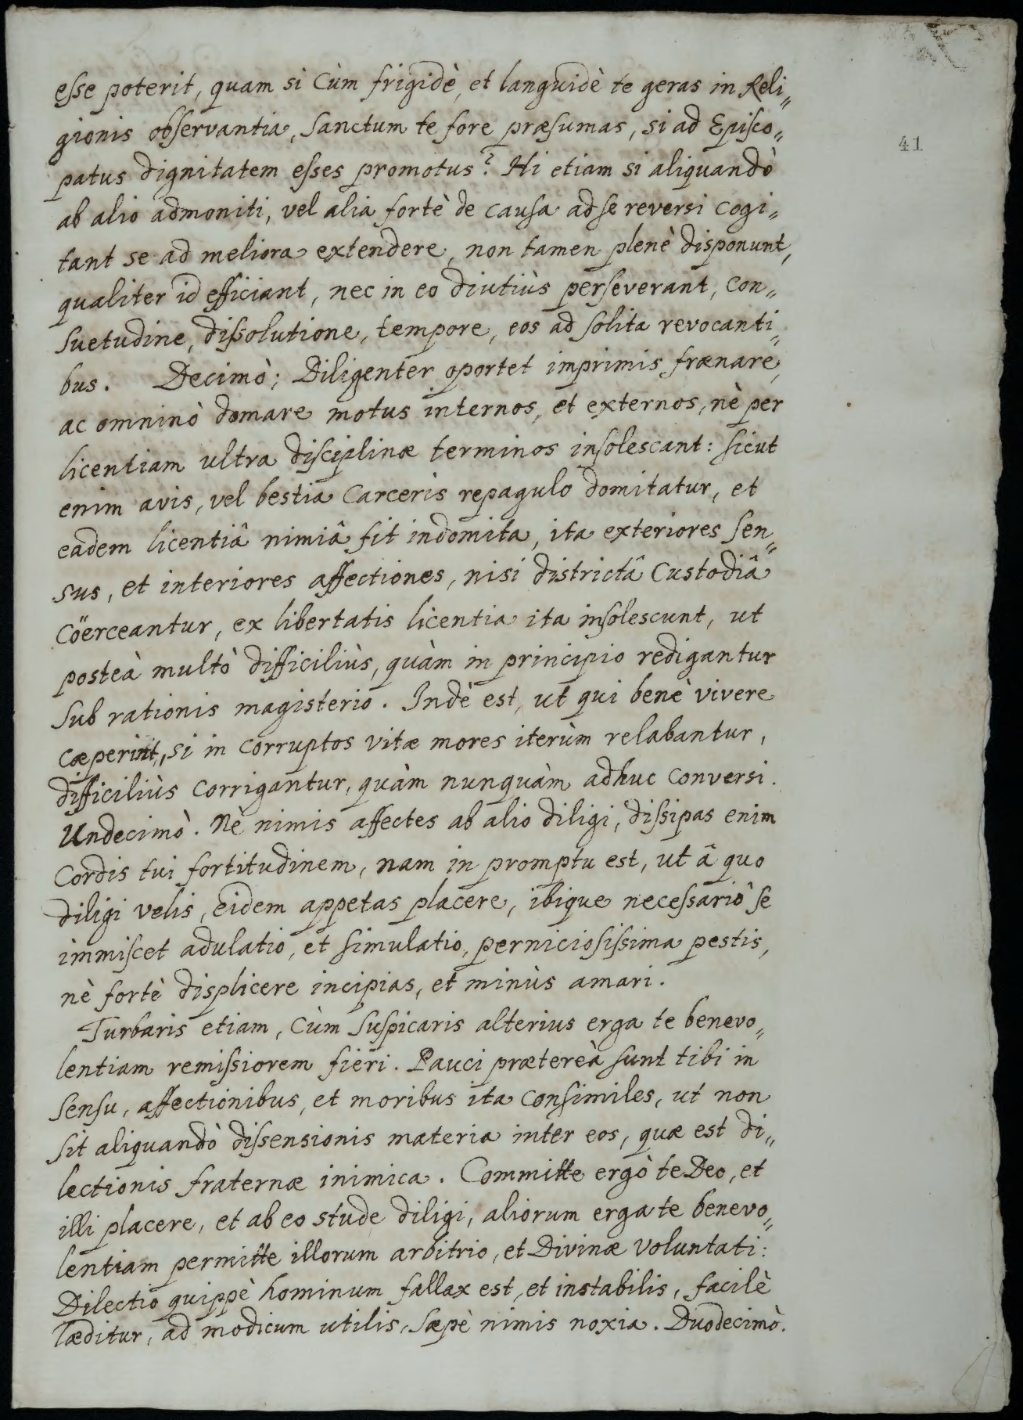 esse poterit, quam si Cùm frigidè, et languidè te geras in Reli„
gionis observantia, Sanctum te fore præsumas, si ad Episco„
patus dignitatem esses promotus? Hi etiam si aliquandò
ab alio admoniti, vel alia fortè de causa ad se reversi cogi„
tant se ad meliora extendere, non tamen plenè disponunt,
qualiter id efficiant, nec in eo diutiùs perseverant, Con„
suetudine, dissolutione, tempore, eos ad solita revocanti„
bus. Decimò; Diligenter oportet imprimis frænare,
ac omninò domare motus internos, et externos, nè per
licentiam ultra disciplinæ terminos insolescant: sicut
enim avis, vel bestia Carceris repagulo domitatur, et
eadem licentiâ nimiâ fit indomita, ita exteriores sen„
sus, et interiores affectiones, nisi districtâ Custodiâ
Cöerceantur, ex libertatis licentia ita insolescunt, ut
posteà multò difficiliùs, quàm in principio redigantur
sub rationis magisterio. Indè est, ut qui benè vivere
cæperint, si in corruptos vitæ mores iterùm relabantur,
difficiliùs corrigantur, quàm nunquàm adhuc conversi.
Undecimò. Nè nimis affectes ab alio diligi, dissipas enim
Cordis tui fortitudinem, nam in promptu est, ut â quo
diligi velis, eidem appetas placere, ibique necessariò se
immiscet adulatio, et simulatio, perniciosissima pestis,
nè fortè displicere incipias, et minùs amari.
Turbaris etiam, Cùm suspicaris alterius erga te benevo„
lentiam remissiorem fieri. Pauci prætereà sunt tibi in
sensu, affectionibus, et moribus ita consimiles, ut non
sit aliquandò dissensionis materia inter eos, quæ est di„
lectionis fraternæ inimica. Committe ergò te Deo, et
illi placere, et ab eo stude diligi, aliorum erga te benevo„
lentiam permitte illorum arbitrio, et Divinæ voluntati:
Dilectio quippè hominum fallax est, et instabilis, facilè
læditur, ad modicum utilis, sæpè nimis noxia. Duodecimò.
41